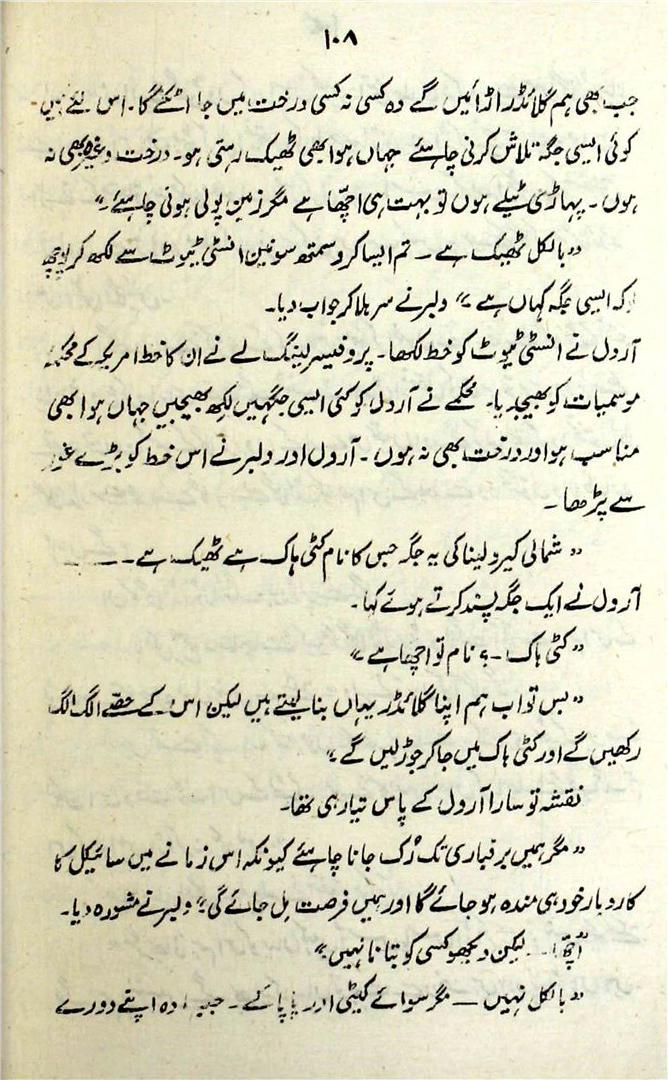 ۱۰۸
جب بھی ہم گلائڈر اڑائیں گے وہ کسی نہ کسی درخت میں جا اٹکے گا۔ اس لئے ہمیں
کوئی ایسی جگہ تلاش کرنی چاہئے جہاں ہوا بھی ٹھیک رہتی ہو۔ درخت وغیرہ بھی نہ
ہوں۔ پہاڑی ٹیلے ہوں تو بہت ہی اچھّا ہے مگر زمین پولی ہوئی چاہئے۔“
”بالکل ٹھیک ہے ــ تم ایسا کرو سمتھ سونین انسٹی ٹیوٹ سے لکھ کر پوچھو
کہ ایسی جگہ کہاں ہے“ ولبر نے سر ہلا کر جواب دیا۔
آرول نے انسٹی ٹیوٹ کو خط لکھا۔ پروفیسر لینگ لے نے ان کا خط امریکہ کے محکمہ
موسمیات کو بھیجدیا۔ محکمے نے آرول کو کئی ایسی جگہیں لکھ بھیجیں جہاں ہوا بھی
مناسب ہو اور درخت بھی نہ ہوں۔ آرول اور ولبر نے اس خط کو بڑے غور
سے پڑھا۔
”شمالی کیرولینا کی یہ جگہ جس کا نام کٹی ہاک ہے ٹھیک ہے ــ
آرول نے ایک جگہ پسند کرتے ہوئے کہا۔
”کٹی ہاک ــ؟ نام تو اچھا ہے“
”بس تو اب ہم اپنا گلائڈر یہاں بنا لیتے ہیں لیکن اس کے حصّے الگ الگ
رکھیں گے اور کٹی ہاک میں جا کر جوڑ لیں گے“
نقشہ تو سارا آرول کے پاس تیار ہی تھا۔
”مگر ہمیں برفباری تک رُک جانا چاہئے کیونکہ اس زمانے میں سائیکل کا
کاروبار خود ہی مندہ ہو جائے گا اور ہمیں فرصت مل جائے گی“ ولبر نے مشورہ دیا۔
”اچھّا ــ لیکن دیکھو کسی کو بتانا نہیں“
”بالکل نہیں ــ مگر سوائے کیٹی اور پاپا کے ــ جب وہ اپنے دورے